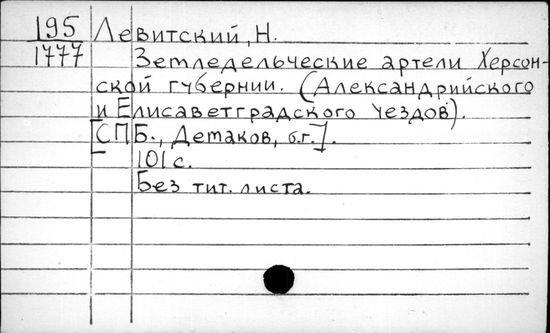 195 Левитский, Н.
1777 Земледельческие артели Херсон-
ской губернии. (Александрийского
и Елисаветградского уездов).
[СПБ., Демаков, б.г.].
101 с.
Без тит. листа.